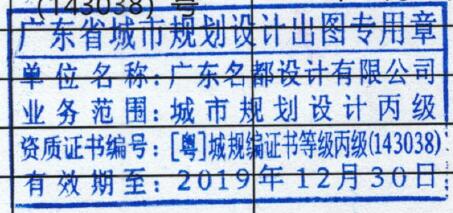 (143038) 号
广东省城市规划设计出图专用章
单位名称:广东名都设计有限公司
业务范围:城市规划设计丙级
资质证书编号:[粤]城规编证书等级丙级(143038)
有效期至:2019年12月30日